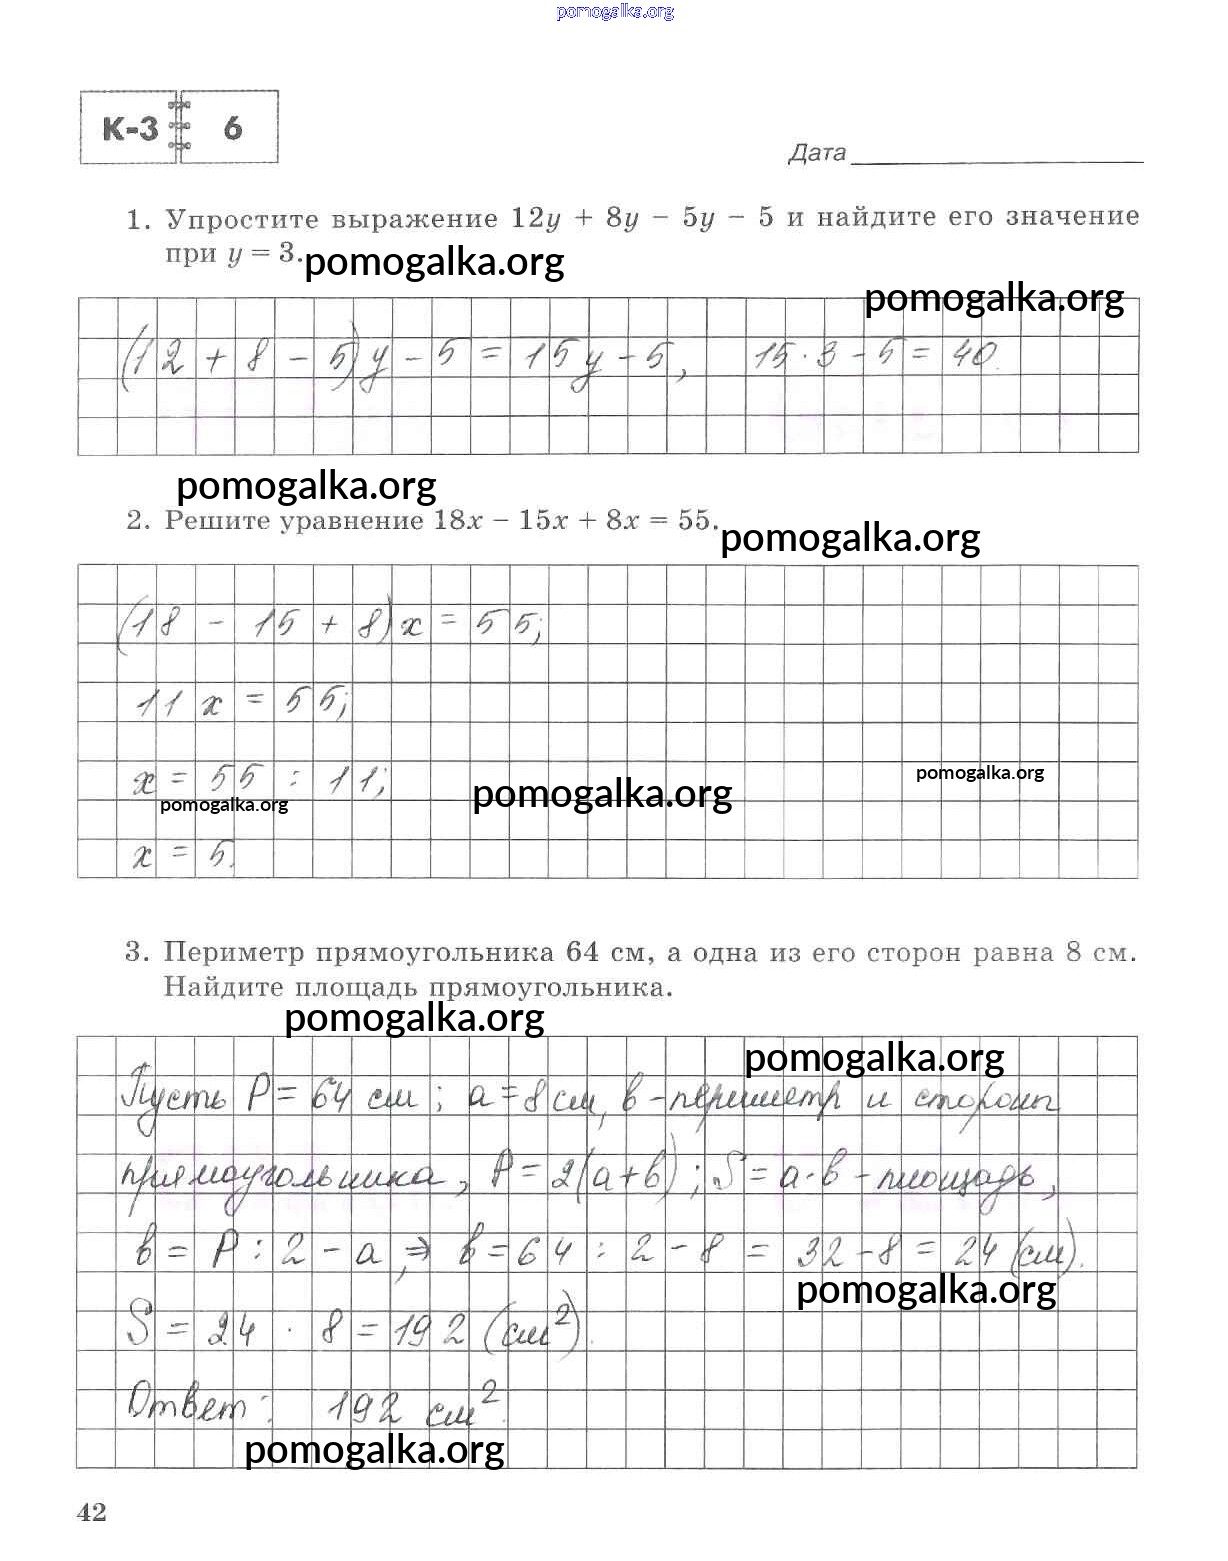 pomogalka.org
К-3 6
Дата
1. Упростите выражение 12y + 8y − 5y − 5 и найдите его значение
при y = 3.
pomogalka.org
pomogalka.org
(12 + 8 − 5)y − 5 = 15y − 5, 15 · 3 − 5 = 40.
pomogalka.org
2. Решите уравнение 18x − 15x + 8x = 55.
pomogalka.org
(18 − 15 + 8)x = 55;
11x = 55;
x = 55 : 11;
pomogalka.org
pomogalka.org
pomogalka.org
x = 5.
3. Периметр прямоугольника 64 см, а одна из его сторон равна 8 см.
Найдите площадь прямоугольника.
pomogalka.org
pomogalka.org
Пусть P = 64 см; a = 8 см, b - периметр и стороны
прямоугольника, P = 2(a + b); S = a · b - площадь,
b = P : 2 − a, ⇒ b = 64 : 2 − 8 = 32 − 8 = 24 (см).
pomogalka.org
S = 24 · 8 = 192 (см²).
Ответ: 192 см².
pomogalka.org
42